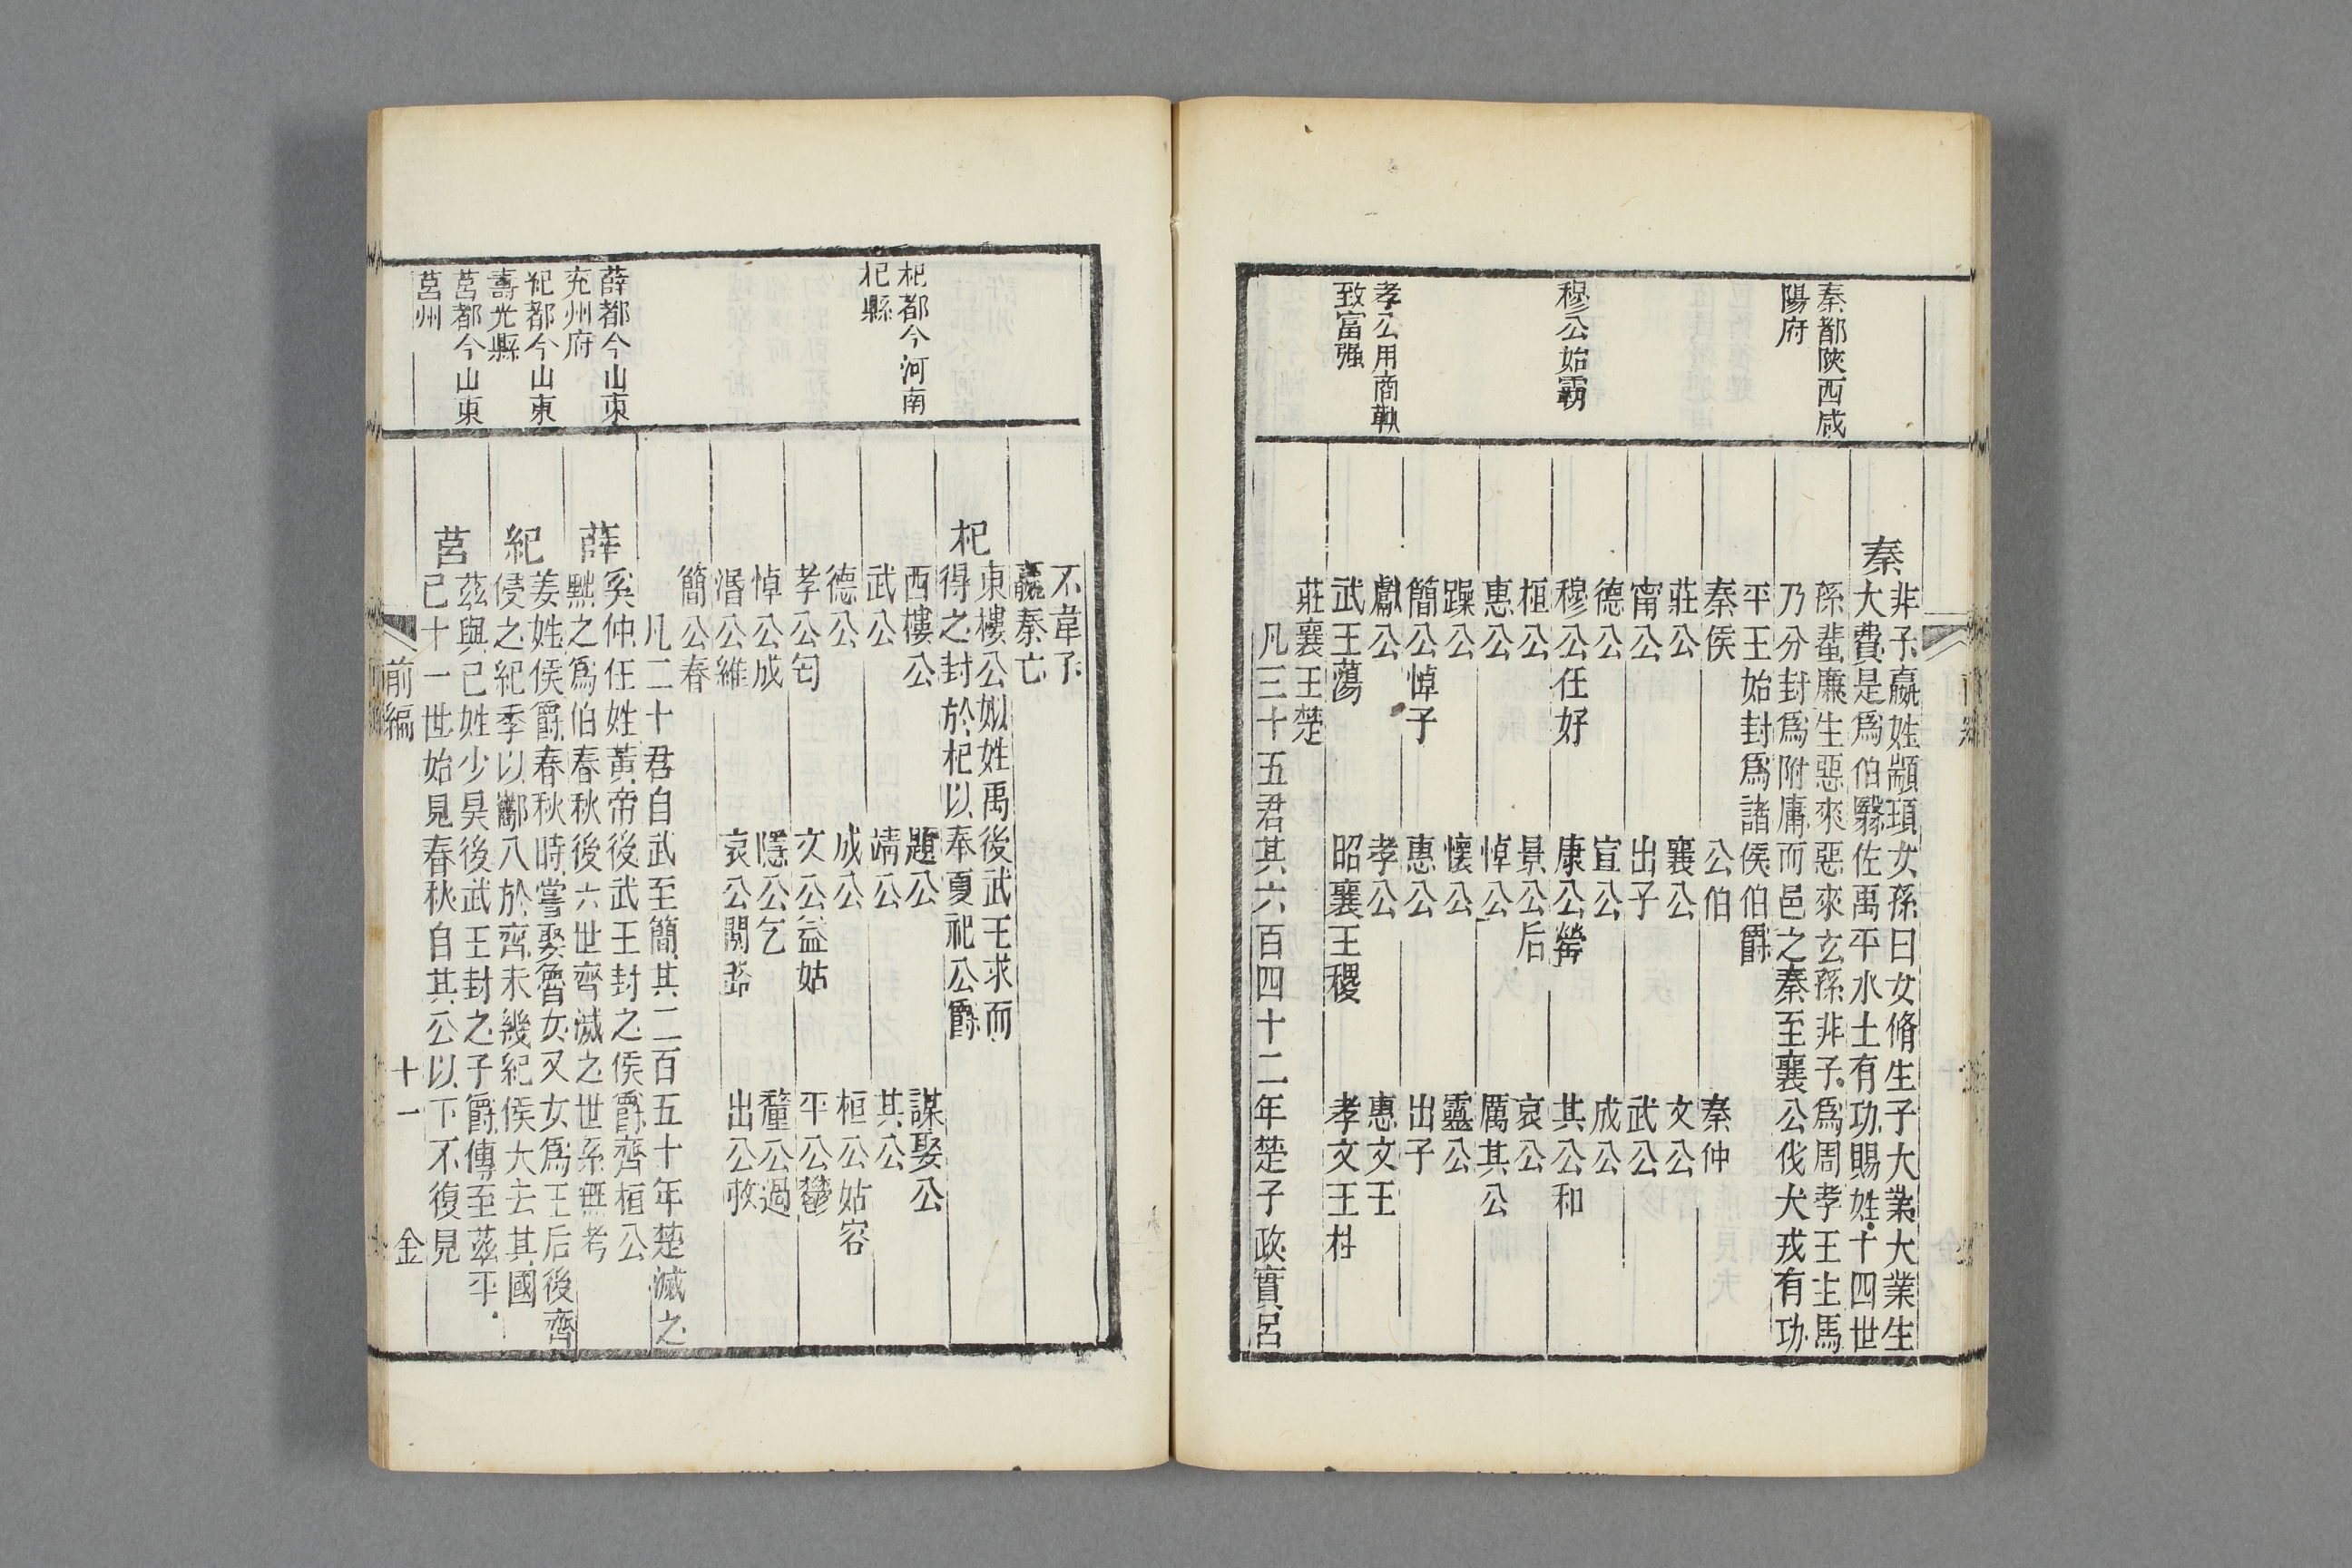 秦都陜西咸
陽府
穆公始霸
孝公用商鞅
致富强
秦
非子嬴姓顓頊女孫曰女脩生子大業大業生
大費是爲伯翳佐禹平水土有功賜姓十四世
孫蜚廉生惡來惡來玄孫非子爲周孝王主馬
乃分封爲附庸而邑之秦至襄公伐犬戎有功
平王始封爲諸侯伯爵
秦侯 公伯 秦仲
莊公 襄公 文公
甯公 出子 武公
德公 宣公 成公
穆公任好 康公罃 其公和
桓公 景公后 哀公
惠公 悼公 厲其公
躁公 懷公 靈公
簡公悼子 惠公 出子
獻公 孝公 惠文王
武王蕩 昭襄王稷 孝文王柱
莊襄王楚
凡三十五君其六百四十二年楚子政實呂
杞都今河南
杞縣
薛都今山東
兖州府
紀都今山東
壽光縣
莒都今山東
莒州
不韋子
嬴秦亡
杞
東樓公姒姓禹後武王求而
得之封於杞以奉夏祀公爵
西樓公 題公 謀娶公
武公 靖公 其公
德公 成公 桓公姑容
孝公匄 文公益姑 平公鬱
悼公成 隱公乞 釐公過
湣公維 哀公閼路 出公敕
簡公春
凡二十君自武至簡其二百五十年楚滅之
薛
奚仲任姓黃帝後武王封之侯爵齊桓公
黜之爲伯春秋後六世齊滅之世系無考
紀
姜姓侯爵春秋時嘗娶魯女又女爲王后後齊
侵之紀季以酅入於齊未幾紀侯大去其國
莒
茲與己姓少昊後武王封之子爵傳至茲平
已十一世始見春秋自其公以下不復見
前編 十一 金